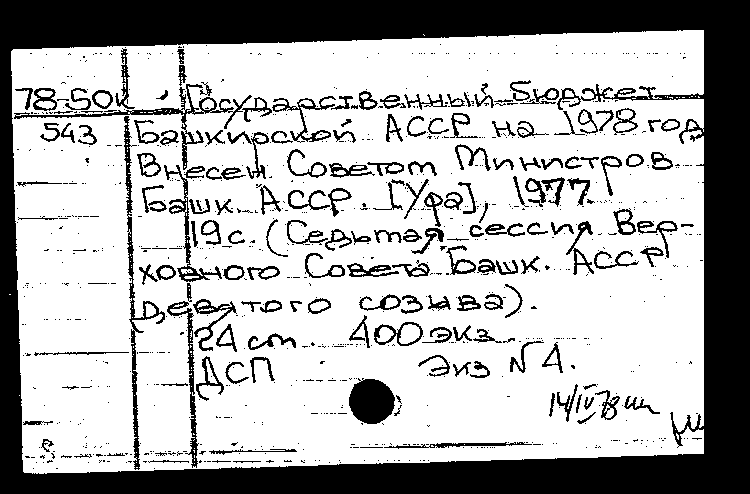 78-50к Государственный бюджет
543 Башкирской АССР на 1978 год
Внесен Советом Министров
Башк. АССР. [Уфа], 1977.
19с. (Седьмая сессия Вер-
ховного Совета Башк. АССР
девятого созыва).
24 cm. 400 экз.
ДСП Экз N 4.
14/IV 78